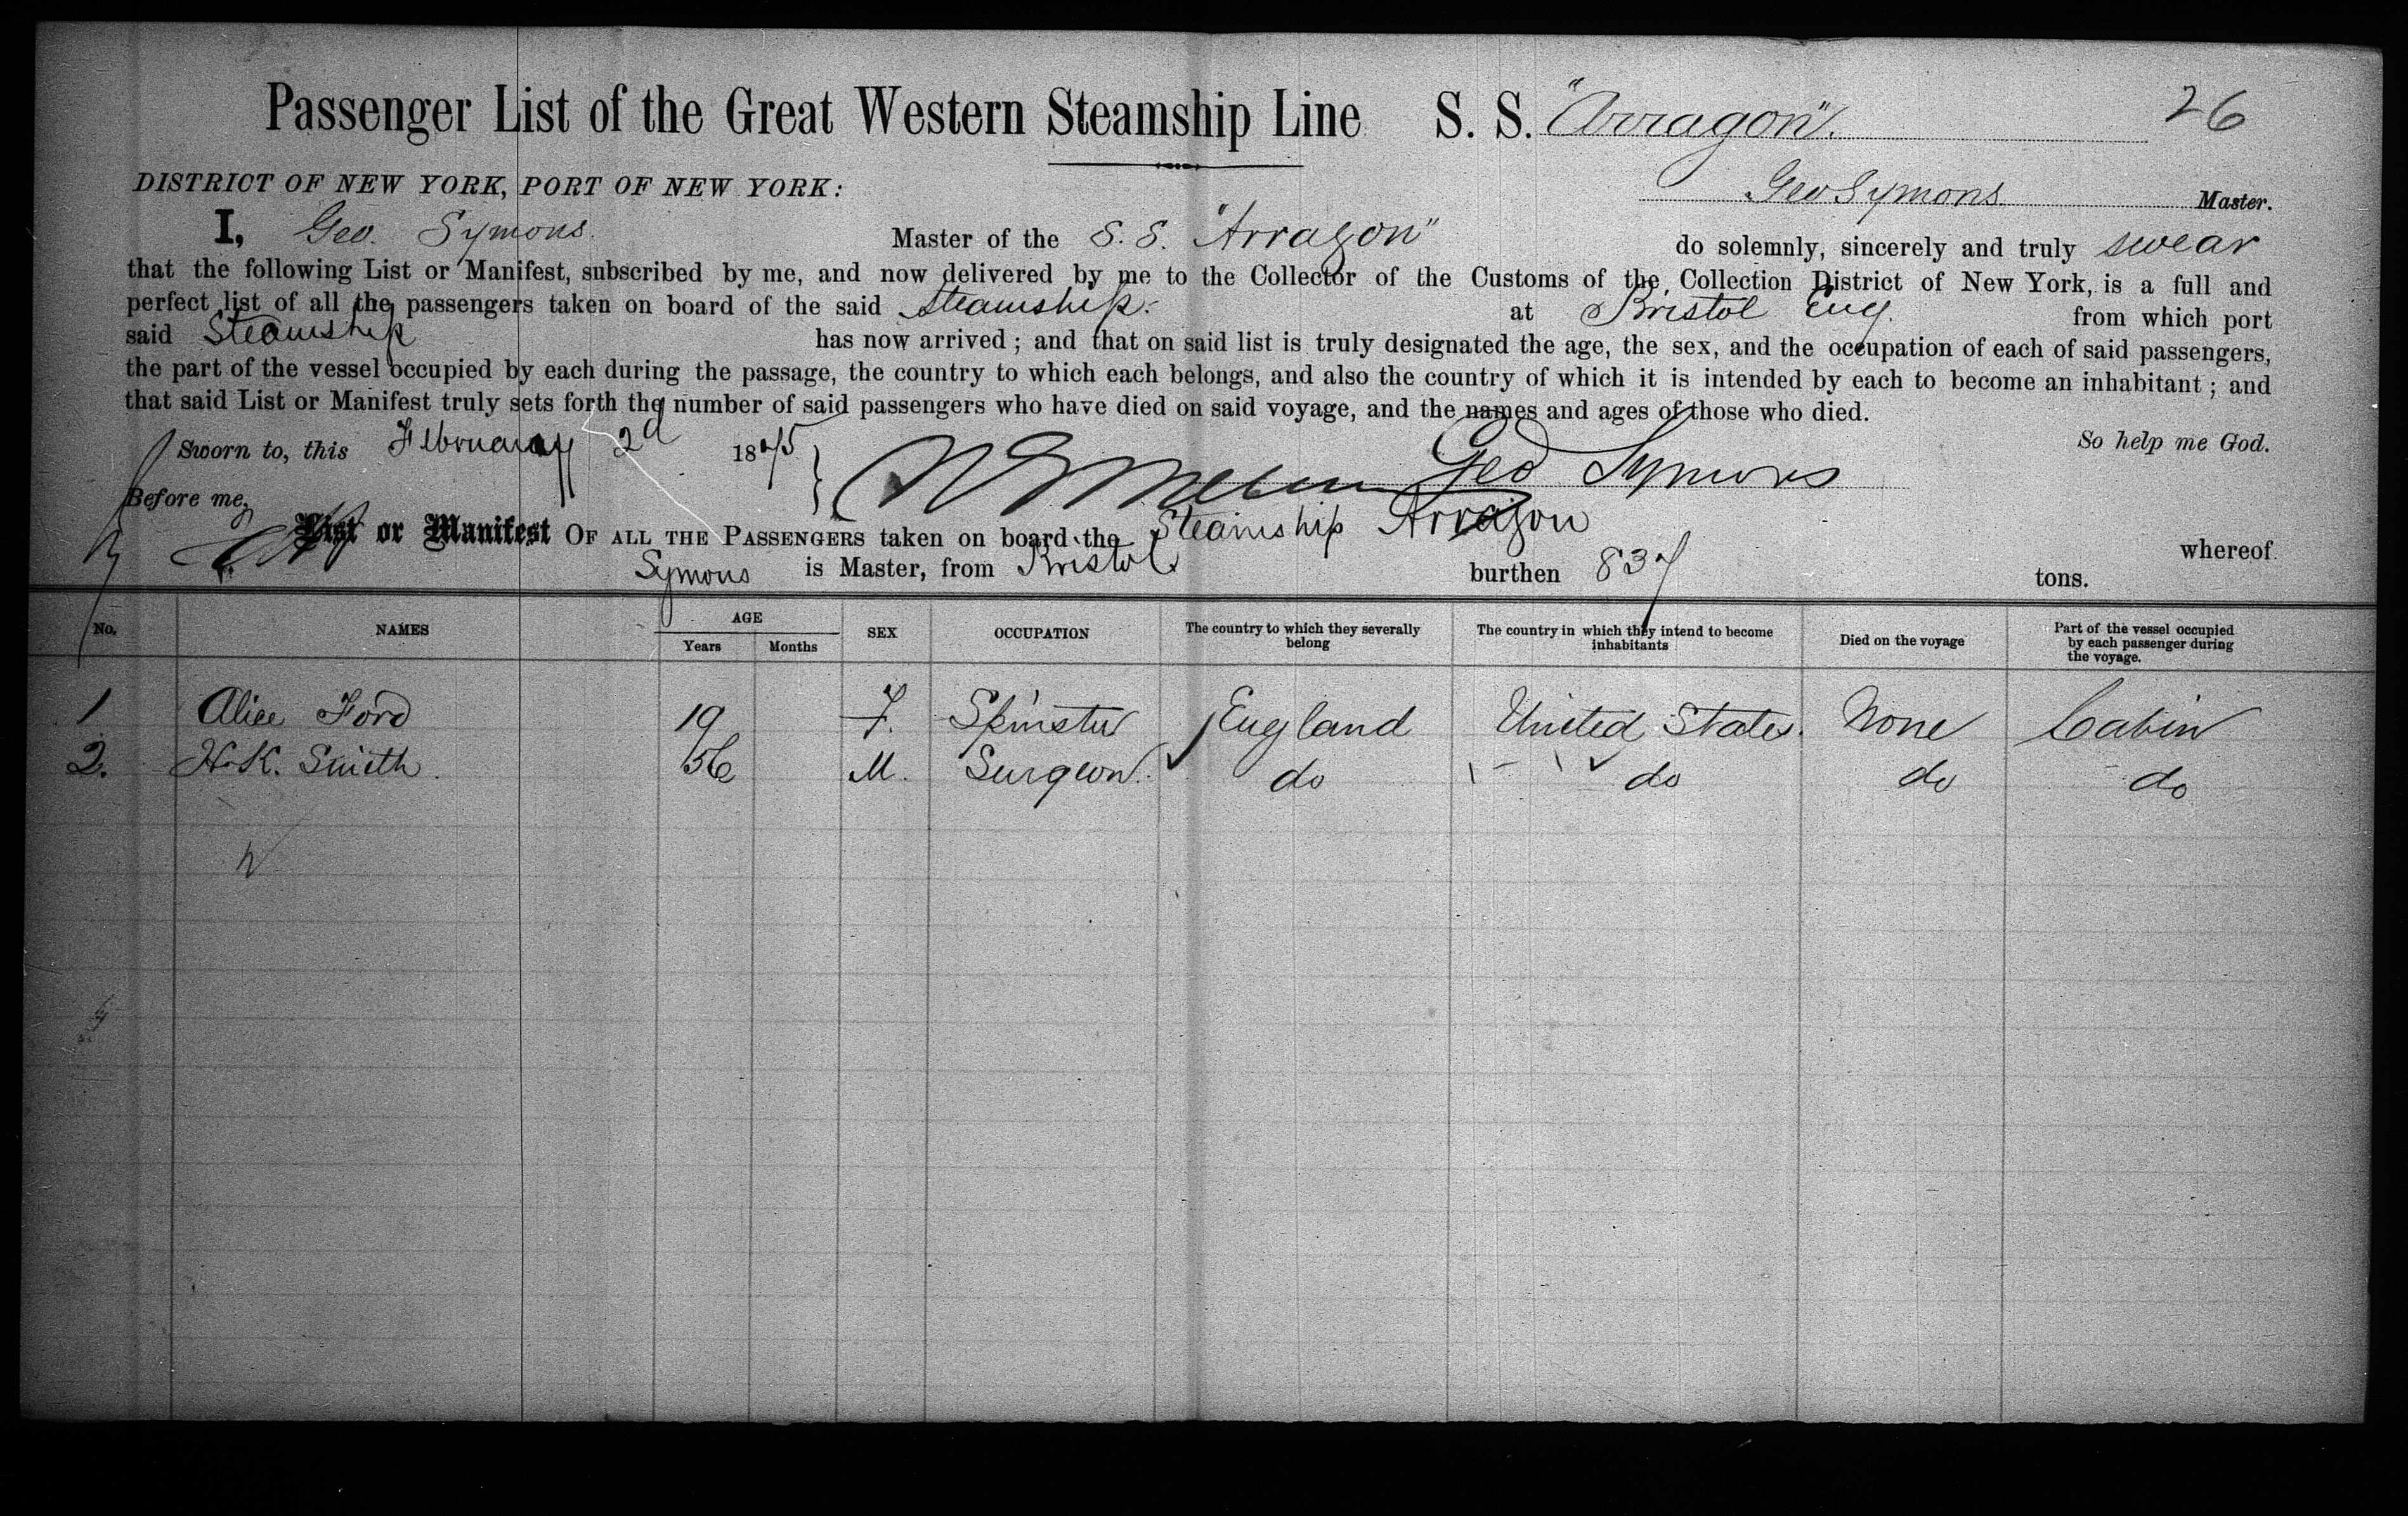 Passenger List of the Great Western Steamship Line S. S. "Arragon". 26
DISTRICT OF NEW YORK, PORT OF NEW YORK: Geo Symons Master.
I, Geo. Symons. Master of the S. S. "Arragon" do solemnly, sincerely and truly swear
that the following List or Manifest, subscribed by me, and now delivered by me to the Collector of the Customs of the Collection District of New York, is a full and
perfect list of all the passengers taken on board of the said Steamship. at Bristol Eng. from which port
said Steamship has now arrived; and that on said list is truly designated the age, the sex, and the occupation of each of said passengers,
the part of the vessel occupied by each during the passage, the country to which each belongs, and also the country of which it is intended by each to become an inhabitant; and
that said List or Manifest truly sets forth the number of said passengers who have died on said voyage, and the names and ages of those who died.
Sworn to, this February 2d 1875 So help me God.
Geo Symons
Before me,
List or Manifest OF ALL THE PASSENGERS taken on board the Steamship Arragon whereof
Symons is Master, from Bristol burthen 837 tons.
No. NAMES AGE Years Months SEX OCCUPATION The country to which they severally belong The country in which they intend to become inhabitants Died on the voyage Part of the vessel occupied by each passenger during the voyage.
1 Alice Ford 19 F. Spinster England United States. None Cabin
2. H. K. Smith. 56 M. Surgeon. do do do do